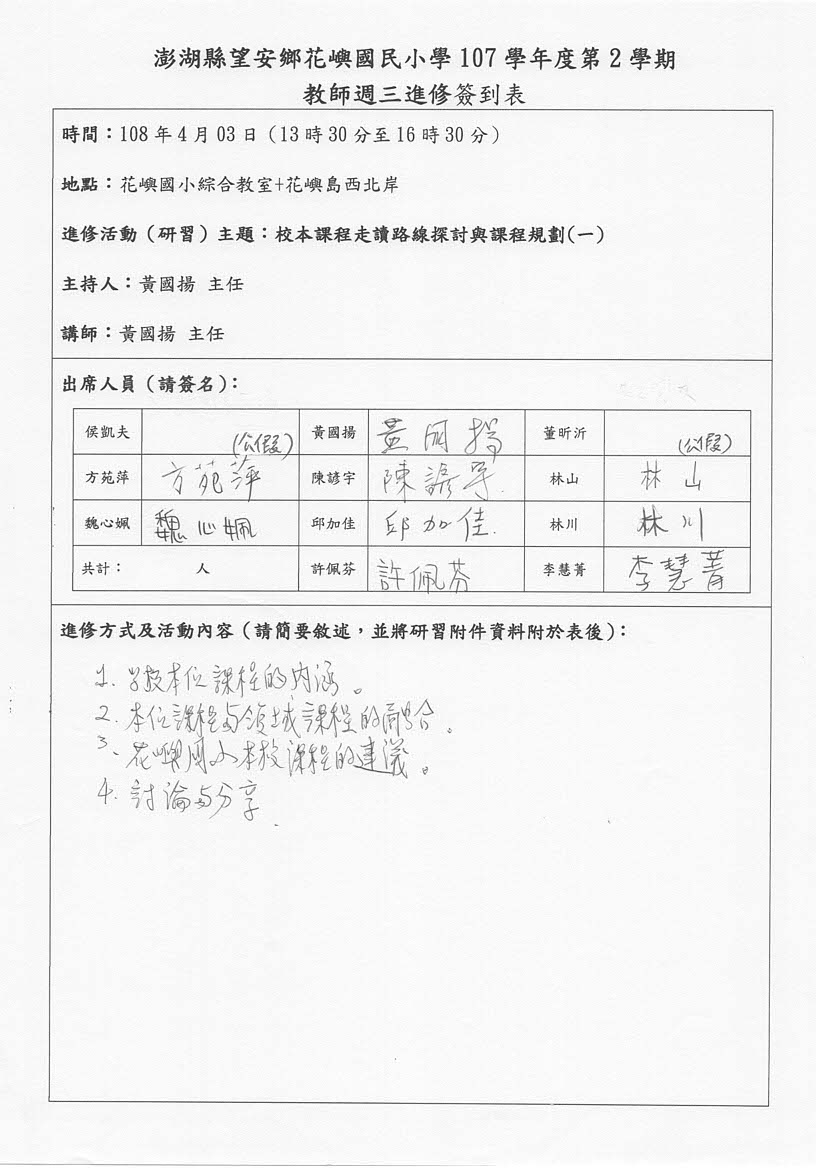 澎湖縣望安鄉花嶼國民小學 107 學年度第 2 學期
教師週三進修簽到表
時間：108 年 4 月 03 日（13 時 30 分至 16 時 30 分）
地點：花嶼國小綜合教室+花嶼島西北岸
進修活動（研習）主題：校本課程走讀路線探討與課程規劃(一)
主持人：黃國揚 主任
講師：黃國揚 主任
出席人員（請簽名）：
侯凱夫 (公假) 黃國揚 黃国揚 董昕沂 (公假)
方苑萍 方苑萍 陳諺宇 陳諺宇 林山 林山
魏心姵 魏心姵 邱加佳 邱加佳 林川 林川
共計： 人 許佩芬 許佩芬 李慧菁 李慧菁
進修方式及活動內容（請簡要敘述，並將研習附件資料附於表後）：
1. 学校本位課程的内涵。
2. 本位課程与領域課程的融合。
3、花嶼国小本校課程的建議。
4. 討論与分享